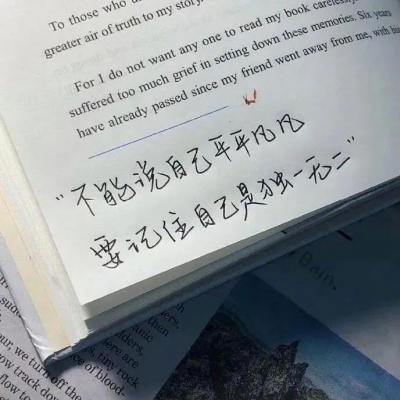 To those who
greater air of truth to my story.
For I do not want any one to read my book carelessly.
suffered too much grief in setting down these memories. Six years
have already passed since my friend went away from me, with his
“不能说自己平平凡凡
要记住自己是独一无二”
Bain.
our, we turn off the
row track down
flow to
anic
ders,
here are
tiny rock
ce of blood-